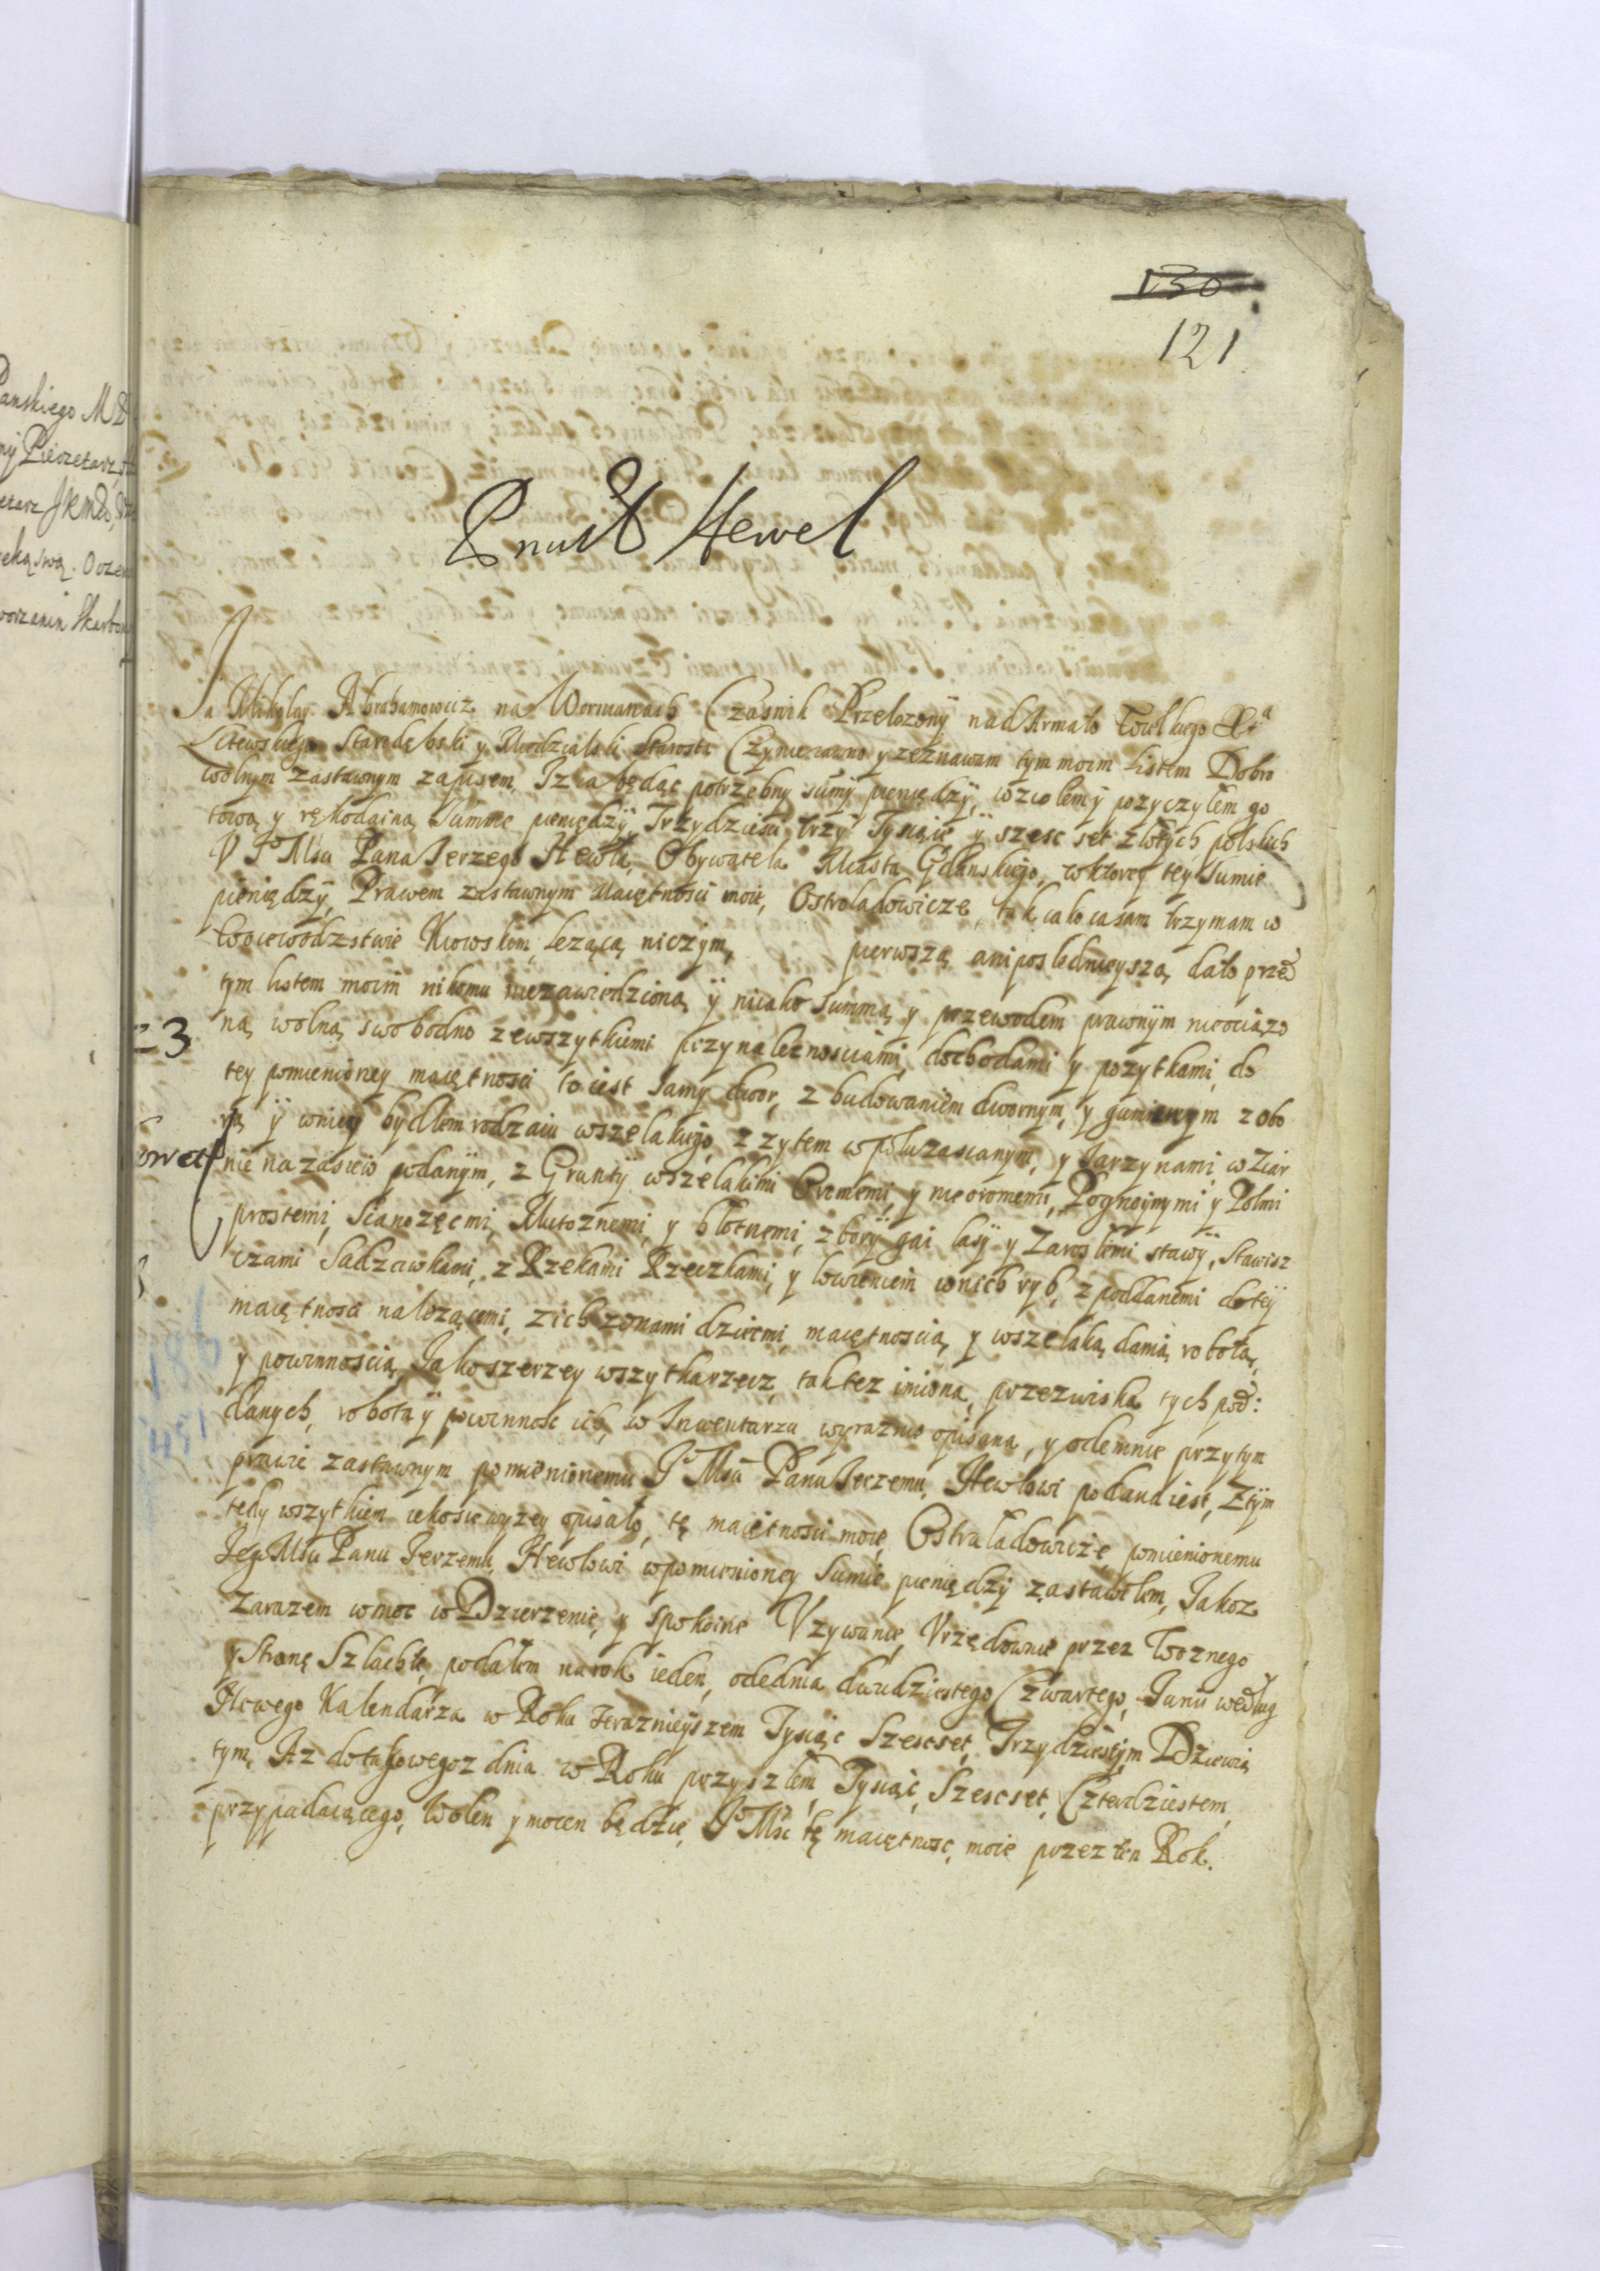 130
121
Ernst Hewel
Ja Mikołay Abrahamowicz na Wornianach Czasnik Przełozonÿ nad Armato Wielkiego
Litewskiego Starodębski y Mscdzialski Starosta Czynię iawno y zeznawam tym moim Listem Dobro
wolnym zastawnym zapisem, Iz ia będąc potrzebny sumÿ pieniędzÿ, wziołem ÿ pozyczyłem go
tową y rękodainą Summe pieniędzÿ Trzydziesci trzÿ Tysiące ÿ szesc set złotÿch polskich
V Jo Msci Pana Jerzego Hewla, Obywatela Miasta Gdanskiego, wktorey teÿ Sumie
pieniędzÿ, Prawem zastawnym Maiętnosci moie, Ostroladowicze, tak iako ia sam trzymam w
Woiewodzstwie Kiowskim, lezącą, niczÿm, pierwszą ani poslednieyszą, dato przed
tym listem moim nikomu niezawiedzioną ÿ niiako Summą y przewodem prawnÿm nieociązo
ną, wolną swobodno zewszytkiemi przynaleznosciami, dochodami y pozytkami, do
tey pomienioney maiętnosci to iest Samÿ dwor, z budowaniem dwornym, y gumiennym z obo
rą ÿ wniey bydłem rodzaiu wszelakiego, z zytem w polu zasianym, y Jarzynami, w Ziar
nie na zasiew podanÿm, z Gruntÿ wszelakimi Oromemi, y nieoromemi, Pognoÿnymi y Polmi
prostemi, Sianozęcmi, Muroznemi, y błotnemi, z borÿ gai lasÿ y Zaroslemi stawÿ, Stawisz
czami Sadzawkami, z Rzekami Rzeczkami, y łowieniem wnich ryb, z poddanemi do teÿ
maiętnosci nalezącemi, z ich zonami dziecmi, maiętnoscią, y wszelaką danią, robotą,
y powinnoscią, Jako szerzey wszytka rzecz, tak tez imiona, przezwiska tych pod:
danych, robota ÿ powinnosc ich, w Inwentarzu wyraznie opisana, y odemnie przytym
prawie zastawnym pomienionemu Jo Msci Panu Jerzemu, Hewlowi podana iest, Ztÿm
tedy wszytkiem iako się wyzey opisało, tę maiętnosci moię Ostraladowicze pomienionemu
Jego Msci Panu Jerzemu Hewlowi wpomienioney Sumie pieniędzÿ zastawiłem, Jakoz
Zarazem w moc w Dzierzenie, y Spokoine Vzywanie, Vrzędownie przez Woznego
y Stronę Szlachtę, podałem na rok ieden, odednia dwudziestego Czwartego, Junii według
Nowego Kalendarza w Roku terazniejszem Tysiąc Szescset, Trzydziestÿm Dziewią
tym, Az do takowegoz dnia w Roku przyszłem, Tysiąc, Szescset, Czterdziestem,
przypadaiącego, Wolen y mocen będzie, Jo Msc tę maiętnosc, moie przez ten Rok.